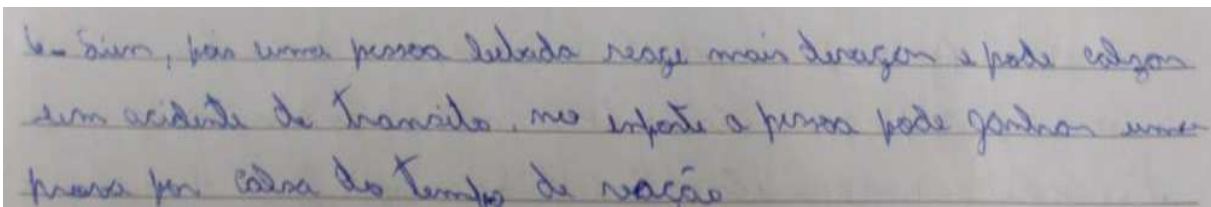 6- Sim, pois uma pessoa bebada reage mais devagar e pode calzar
um acidente de transito, no esporte a pessoa pode ganhar uma
prova por calsa do tempo de reação